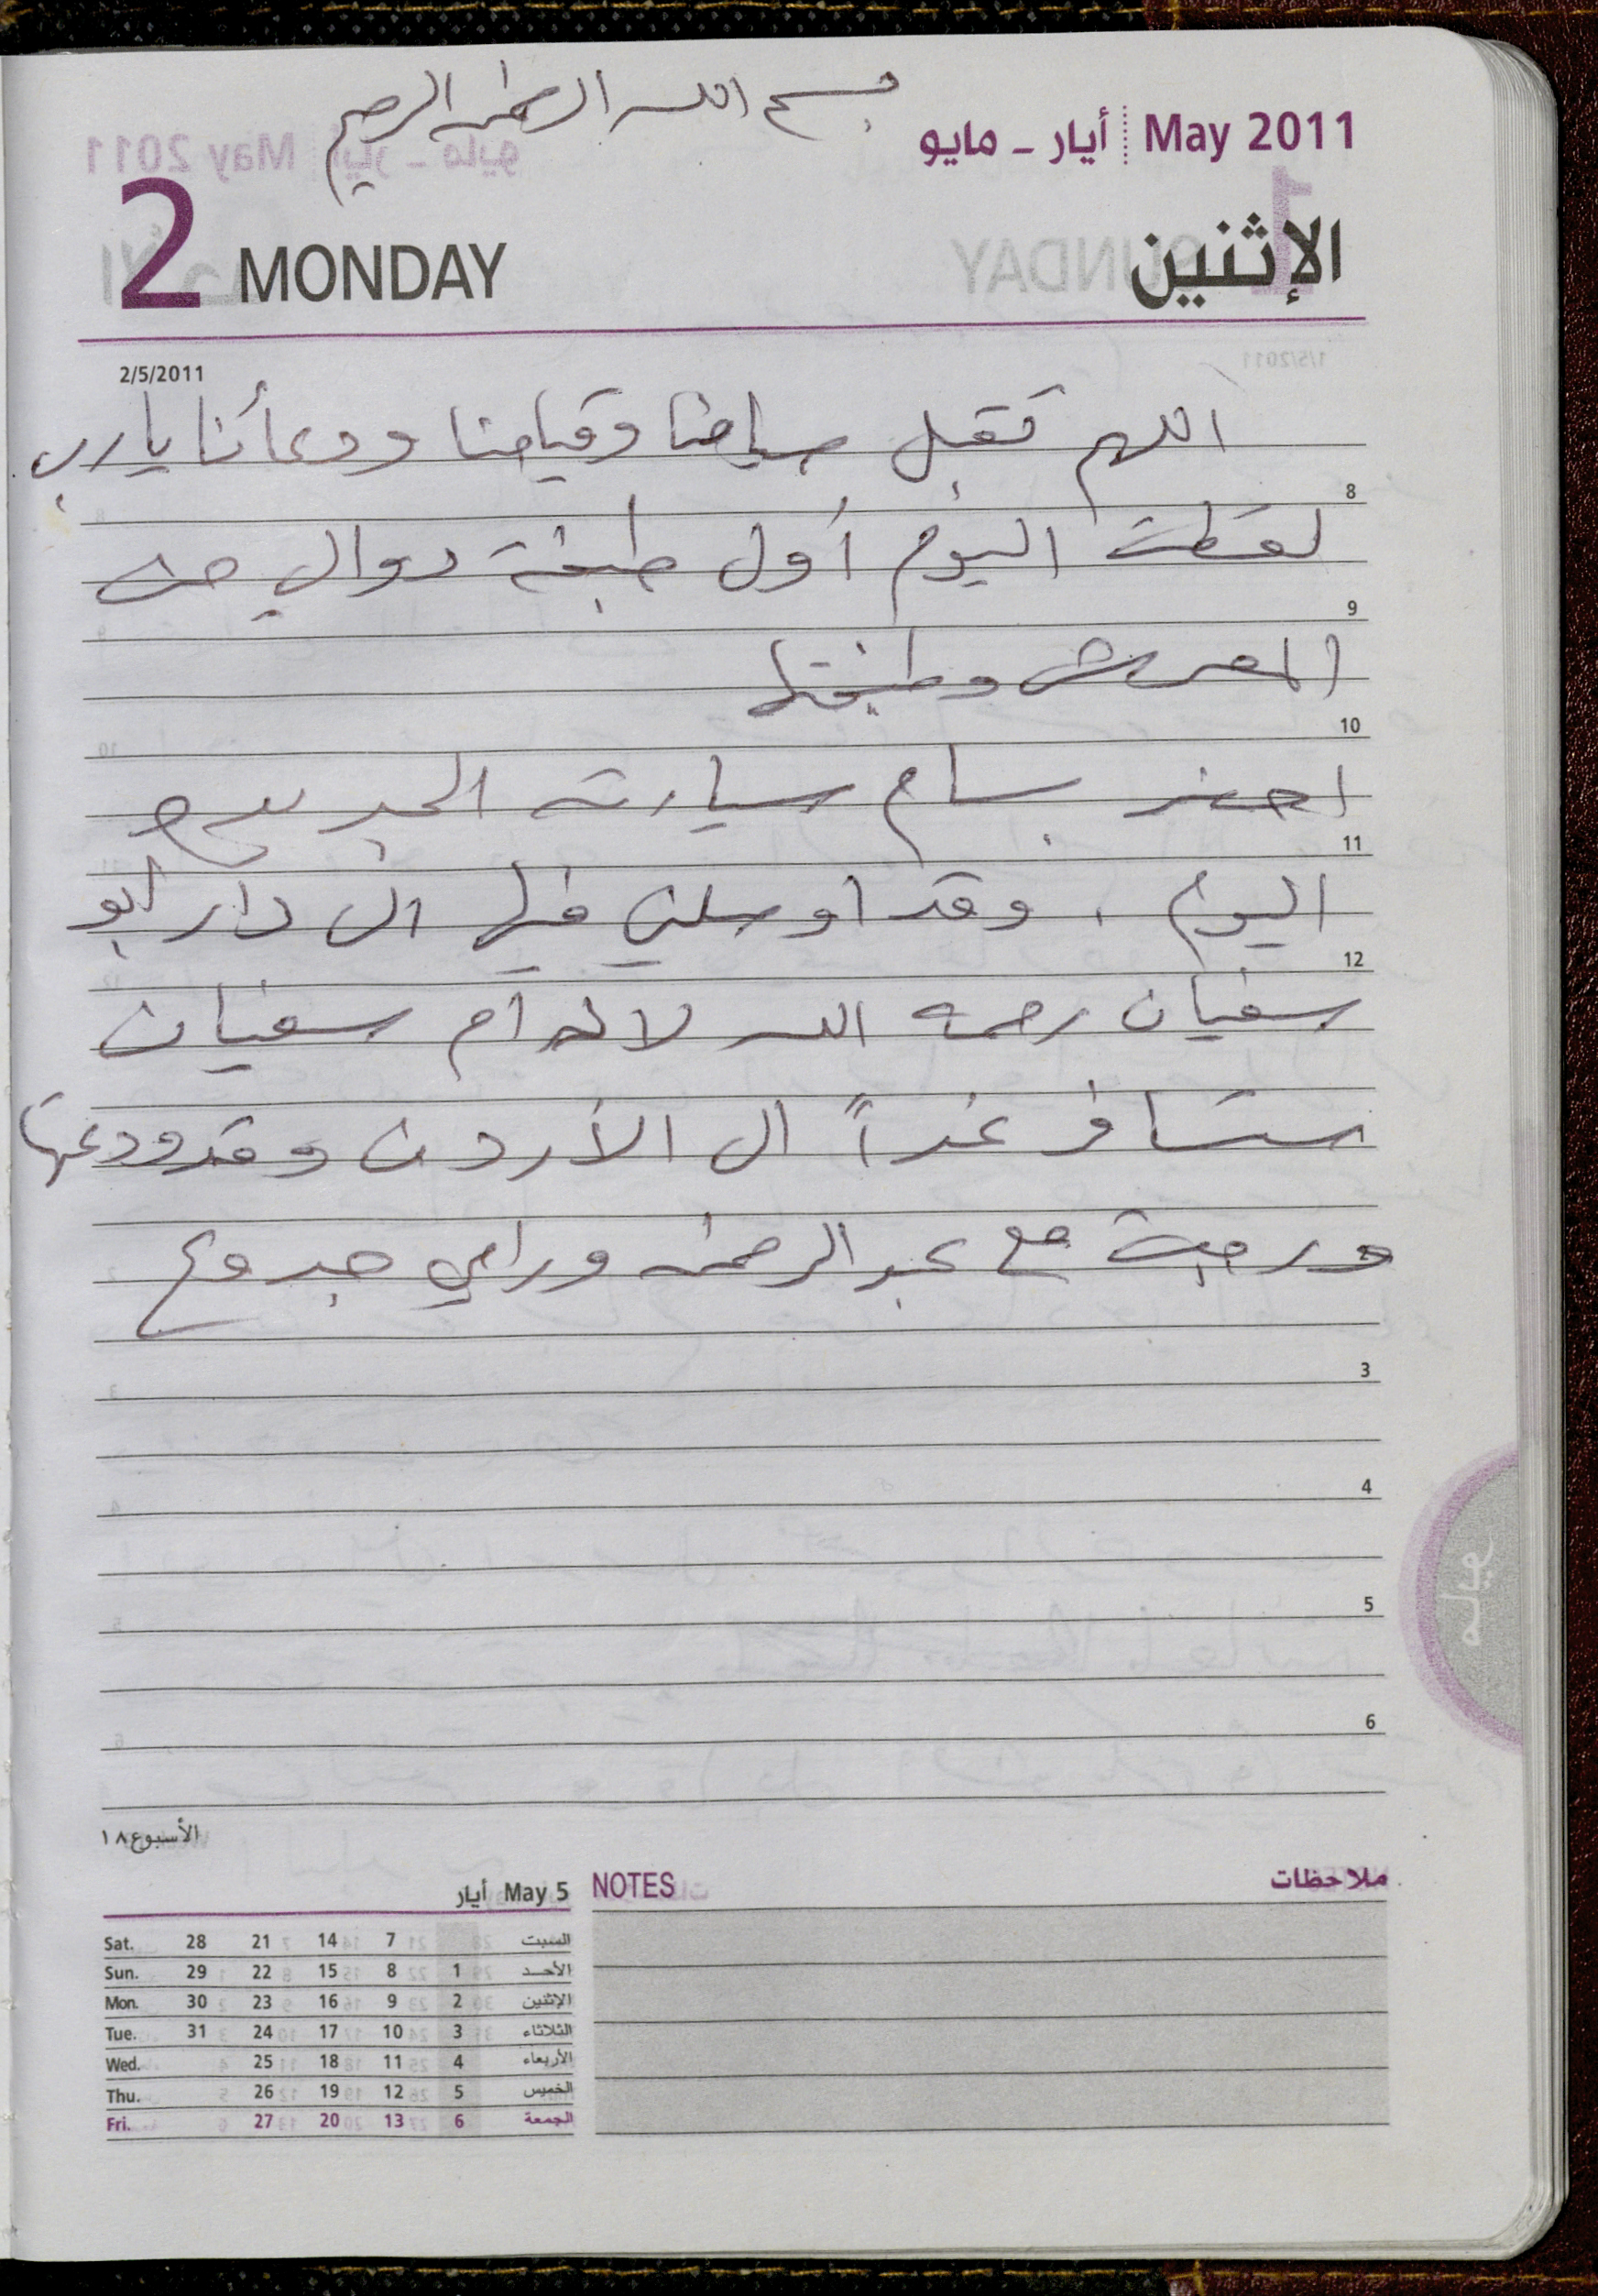 بسم الله الرحمن الرحيم
May 2011 أيار - مايو
2 MONDAY الإثنين
2/5/2011
اللهم تقبل صيامنا وقيامنا ودعأنا يارب
8
لقطت اليوم أول طبخة دوالي من
9
المعرش وطبختها
10
احضر بسام سيارته الجديدة
11
اليوم ، وقد اوصلني فيها الى دار ابو
12
سفيان رحمه الله لان أم سفيان
ستسافر غداً الى الأردن وقد ودعتها
ورجعت مع عبد الرحمن ورامي جدوع
3
4
5
6
الأسبوع ١٨
May 5 أيار
Sat. 28 21 14 7 السبت
Sun. 29 22 15 8 1 الأحد
Mon. 30 23 16 9 2 الإثنين
Tue. 31 24 17 10 3 الثلاثاء
Wed. 25 18 11 4 الأربعاء
Thu. 26 19 12 5 الخميس
Fri. 27 20 13 6 الجمعة
NOTES ملاحظات